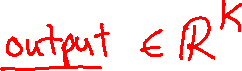 output ∈ ℝ^K